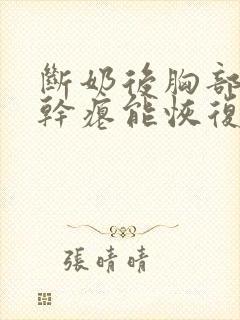 斷奶後胸部
幹癟能恢復
張晴晴